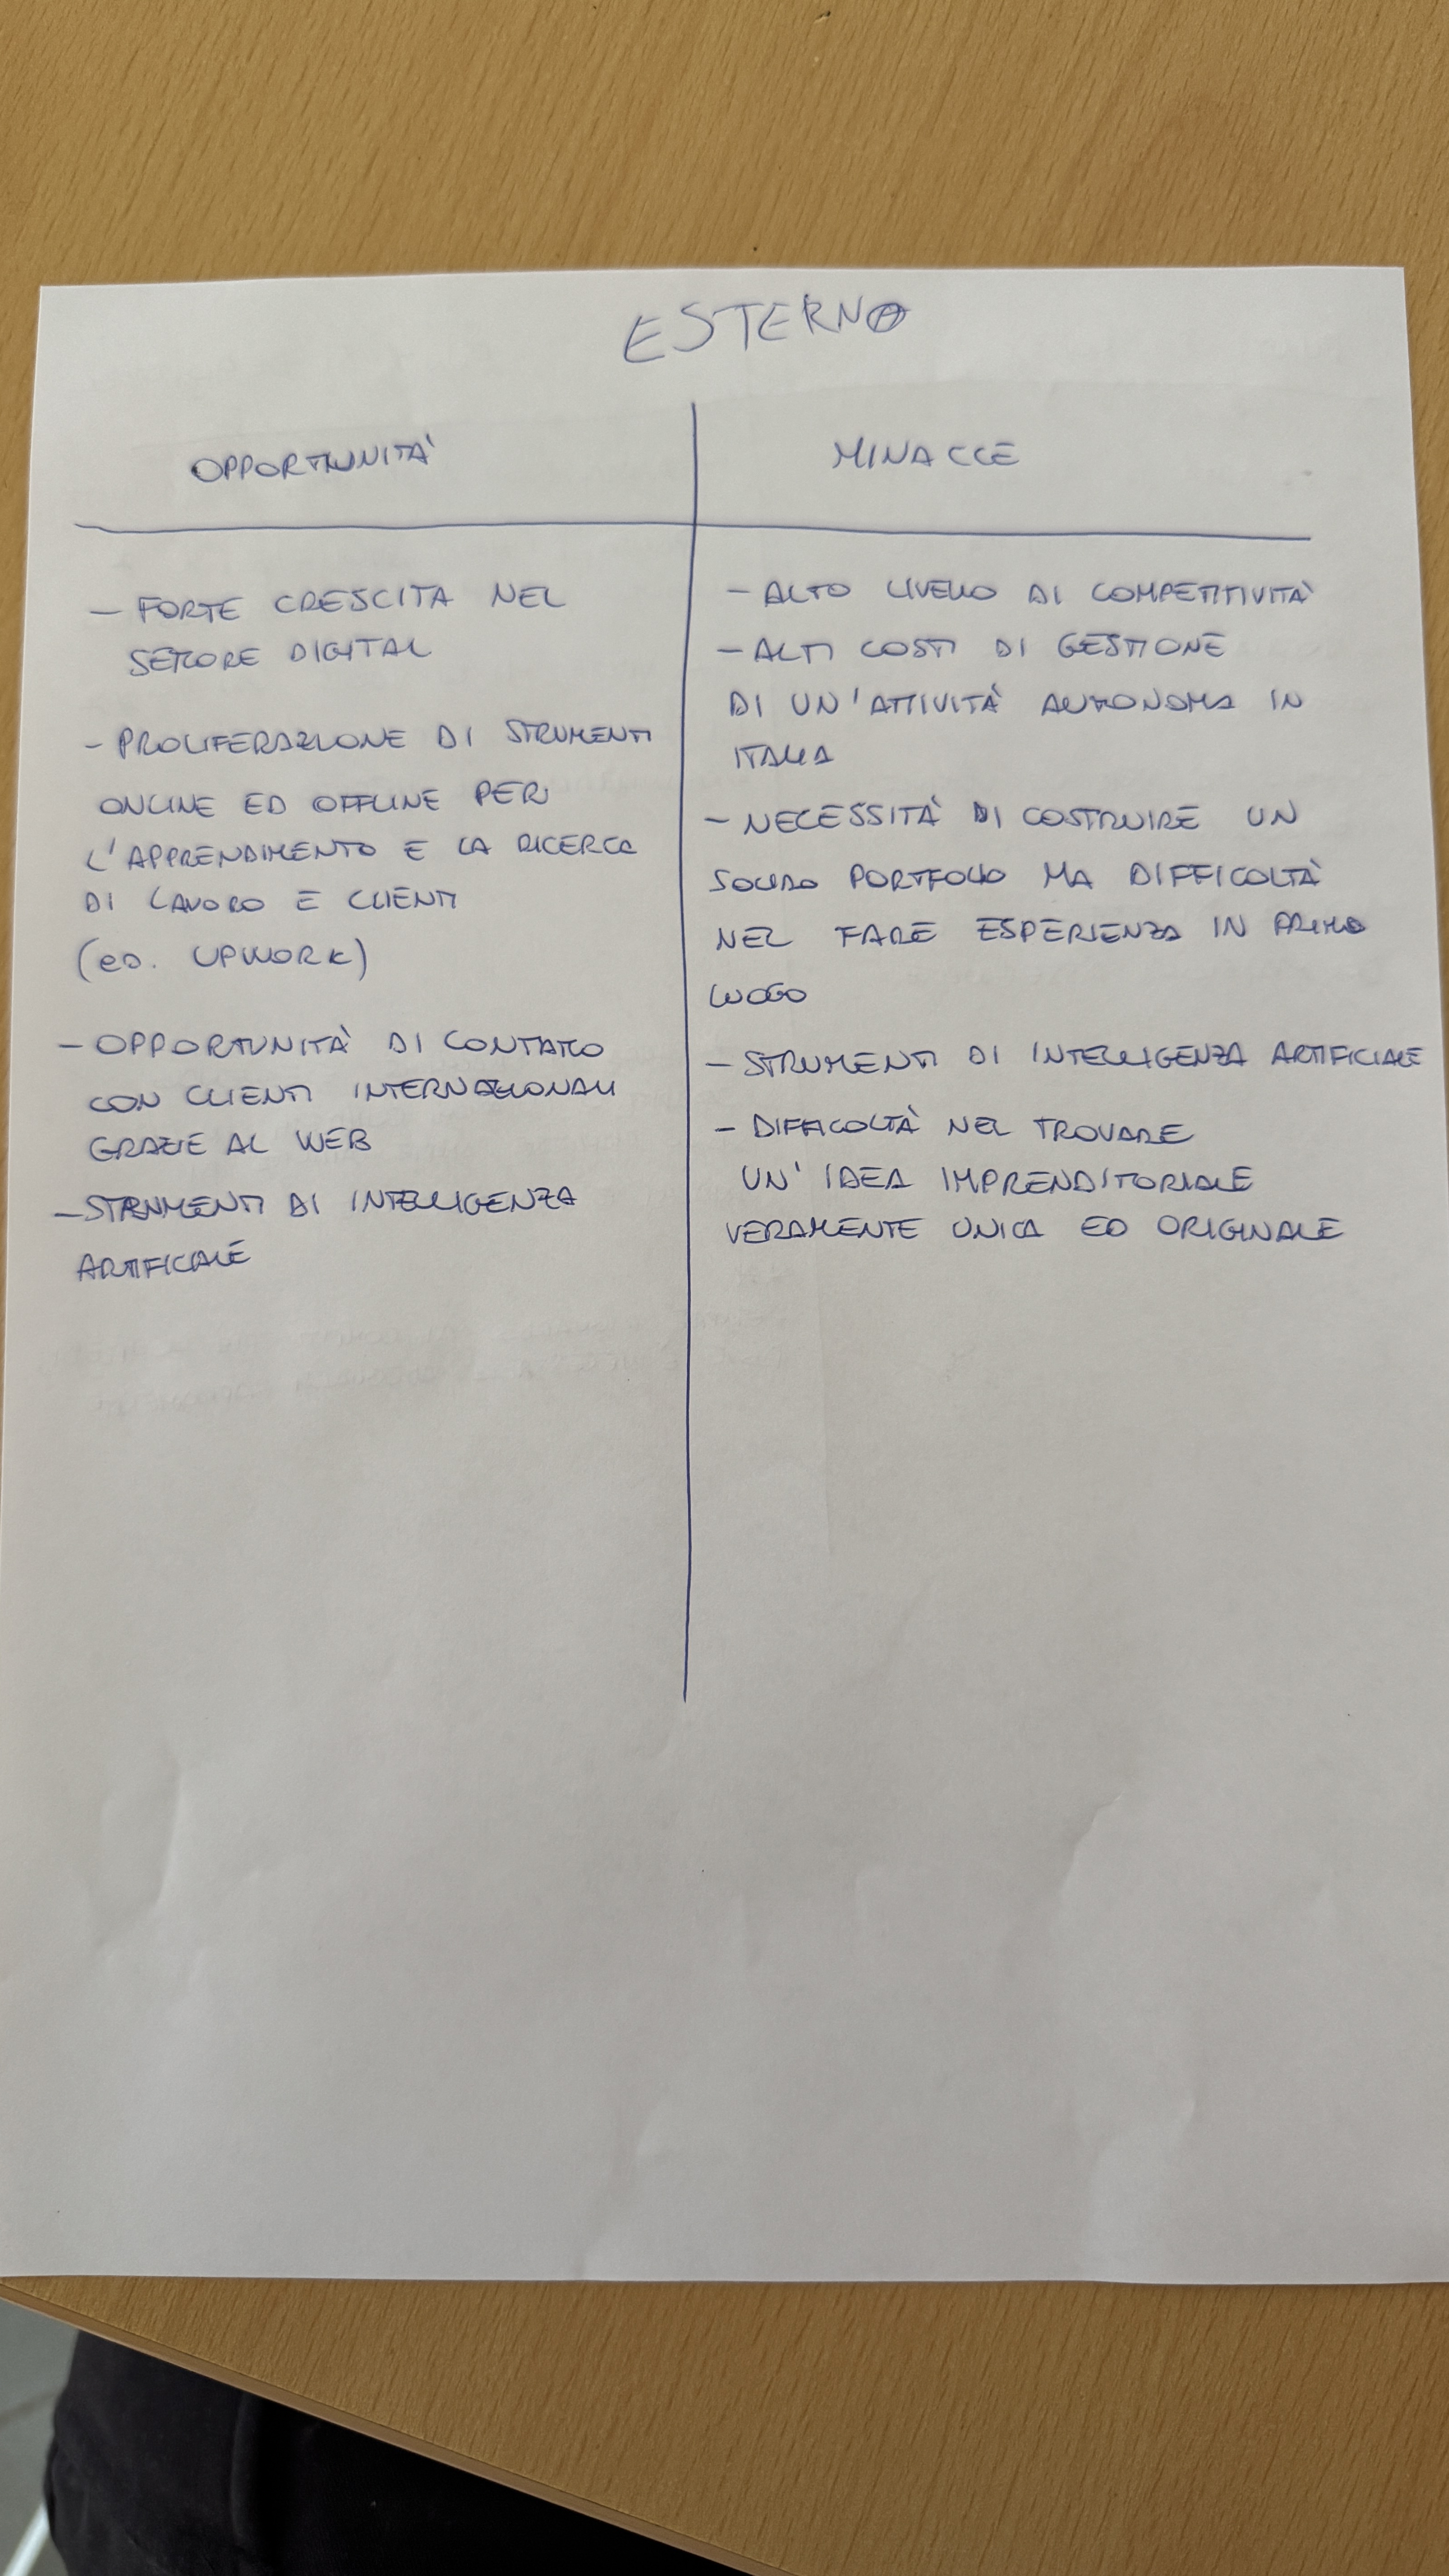 ESTERNO
OPPORTUNITÀ
- FORTE CRESCITA NEL
SETTORE DIGITAL
- PROLIFERAZIONE DI STRUMENTI
ONLINE ED OFFLINE PER
L'APPRENDIMENTO E LA RICERCA
DI LAVORO E CLIENTI
(ES. UPWORK)
- OPPORTUNITÀ DI CONTATTO
CON CLIENTI INTERNAZIONALI
GRAZIE AL WEB
- STRUMENTI DI INTELLIGENZA
ARTIFICIALE
MINACCE
- ALTO LIVELLO DI COMPETITIVITÀ
- ALTI COSTI DI GESTIONE
DI UN'ATTIVITÀ AUTONOMA IN
ITALIA
- NECESSITÀ DI COSTRUIRE UN
SOLIDO PORTFOLIO MA DIFFICOLTÀ
NEL FARE ESPERIENZA IN PRIMO
LUOGO
- STRUMENTI DI INTELLIGENZA ARTIFICIALE
- DIFFICOLTÀ NEL TROVARE
UN'IDEA IMPRENDITORIALE
VERAMENTE UNICA ED ORIGINALE